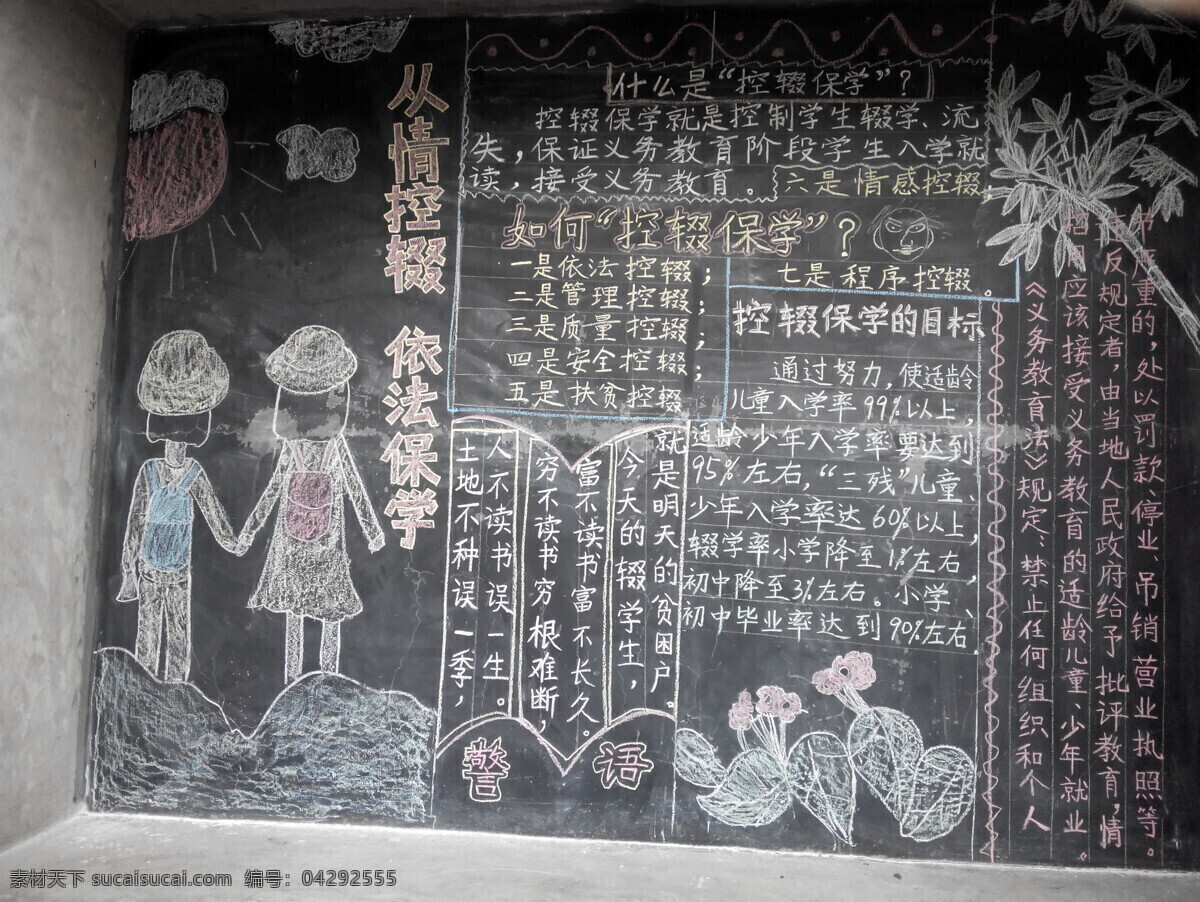 从情控辍 依法保学
什么是“控辍保学”?
控辍保学就是控制学生辍学、流
失,保证义务教育阶段学生入学就
读,接受义务教育。
如何“控辍保学”?
一是依法控辍;
二是管理控辍;
三是质量控辍;
四是安全控辍;
五是扶贫控辍
六是情感控辍;
七是程序控辍。
控辍保学的目标
通过努力,使适龄
儿童入学率99%以上,
适龄少年入学率要达到
95%左右,“三残”儿童、
少年入学率达60%以上,
辍学率小学降至1%左右,
初中降至3%左右。小学、
初中毕业率达到90%左右
人不读书误一生。
土地不种误一季,
富不读书富不长久。
穷不读书穷根难断,
就是明天的贫困户。
今天的辍学生,
警语
《义务教育法》规定:禁止任何组织和个人
应该接受义务教育的适龄儿童、少年就业。
反规定者,由当地人民政府给予批评教育,情
重的,处以罚款、停业、吊销营业执照等。
素材天下 sucaisucai.com 编号:04292555